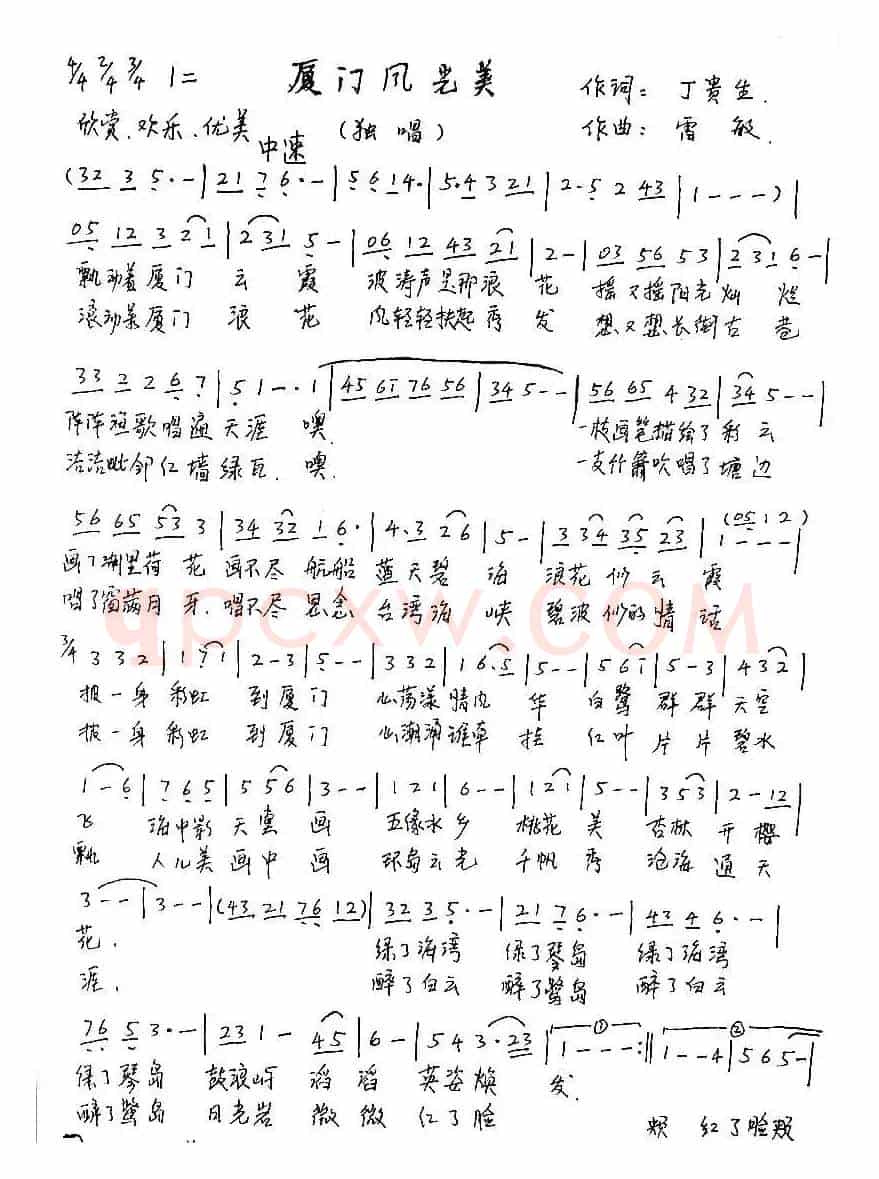 4/4 2/4 3/4 1= 厦门风光美 作词：丁贵生.
欣赏、欢乐、优美 中速 （独唱） 作曲：雷敏.
(32 3 5·-|21 7 6·-|5 6 1 4·|5·4 3 21|2·5 2 43|1---)|
05 12 3 2 1|2 31 5-|06 12 43 21|2-|03 56 53|2 31 6-|
飘动着厦门 云霞 波涛声是那浪花 摇又摇阳光灿烂
滚动着厦门 浪花 风轻轻扶起秀发 想又想长街古巷
33 2 2 6 7|5 1-·1|45 61 76 56|34 5--|56 65 4 32|34 5--|
阵阵渔歌唱遍天涯 噢. 一枝画笔描绘了彩云
洁洁毗邻红墙绿瓦. 噢. 一支竹箫吹唱了塘边
56 65 53 3|34 32 1 6·|4·3 2 6|5-|3 34 35 23|1---(05 12)|
画了湖里荷花 画不尽航船 蓝天碧海 浪花似云霞
唱了雷满月牙. 唱不尽思念 台湾海峡 碧波似的情话
qpcxw.com
3/4 3 3 2|1 7 1|2-3|5--|3 3 2|1 6·5|5--|5 6 1|5-3|4 3 2|
披一身彩虹 到厦门 心荡漾情风华 白鹭群群天空
披一身彩虹 到厦门 心潮涌谁牵挂 红叶片片碧水
1-6|7 6 5|5 5 6|3--|1 2 1|6--|1 2 1|5--|3 5 3|2-12|
飞 海中影天堂画 五缘水乡 桃花美 杏林开樱
飘 人儿美画中画 环岛云光 千帆秀 沧海通天
3--|3--|(43 21 76 12)|32 3 5·-|21 7 6·-|43 4 6·-|
花. 绿了海湾 绿了琴岛 绿了海湾
涯. 醉了白云 醉了鹭岛 醉了白云
76 5 3·-|23 1- 45|6-|5 4 3·23|① 1---:‖② 1--4|5 6 5-|
绿了琴岛 鼓浪屿 滔滔 英姿焕发.
醉了鹭岛 日光岩 微微 红了脸 颊 红了脸颊